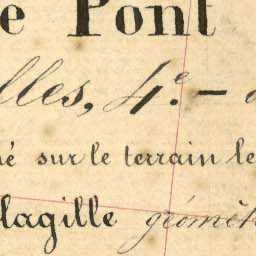 e Pont
lles, 4e. –
é sur le terrain le
lagille géomèt